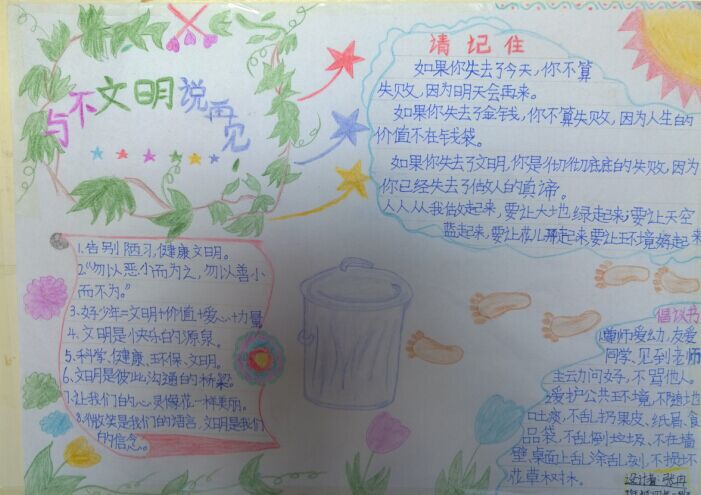 与不文明说再见
请记住
如果你失去了今天，你不算
失败，因为明天会再来。
如果你失去了金钱，你不算失败，因为人生的
价值不在钱袋。
如果你失去了文明，你是彻彻底底的失败，因为
你已经失去了做人的真谛。
人人从我做起来，要让大地绿起来；要让天空
蓝起来，要让花儿开起来要让环境好起来
1.告别陋习，健康文明。
2.“勿以恶小而为之，勿以善小
而不为。”
3.好少年=文明+价值+爱心+力量
4.文明是小快乐的源泉。
5.科学、健康、环保、文明。
6.文明是彼此沟通的桥梁。
7.让我们的心灵像花一样美丽。
8.微笑是我们的语言，文明是我们
的信念。
倡议书
1尊师爱幼，友爱
同学、见到老师
主动问好，不骂人。
2爱护公共环境，不随地
吐痰，不乱扔果皮、纸屑、食
品袋，不乱倒垃圾、不在墙
壁、桌面上乱涂乱刻，不损坏
花草树木。
设计者：张冉